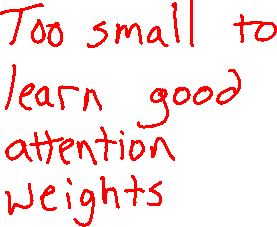 Too small to
learn good
attention
weights